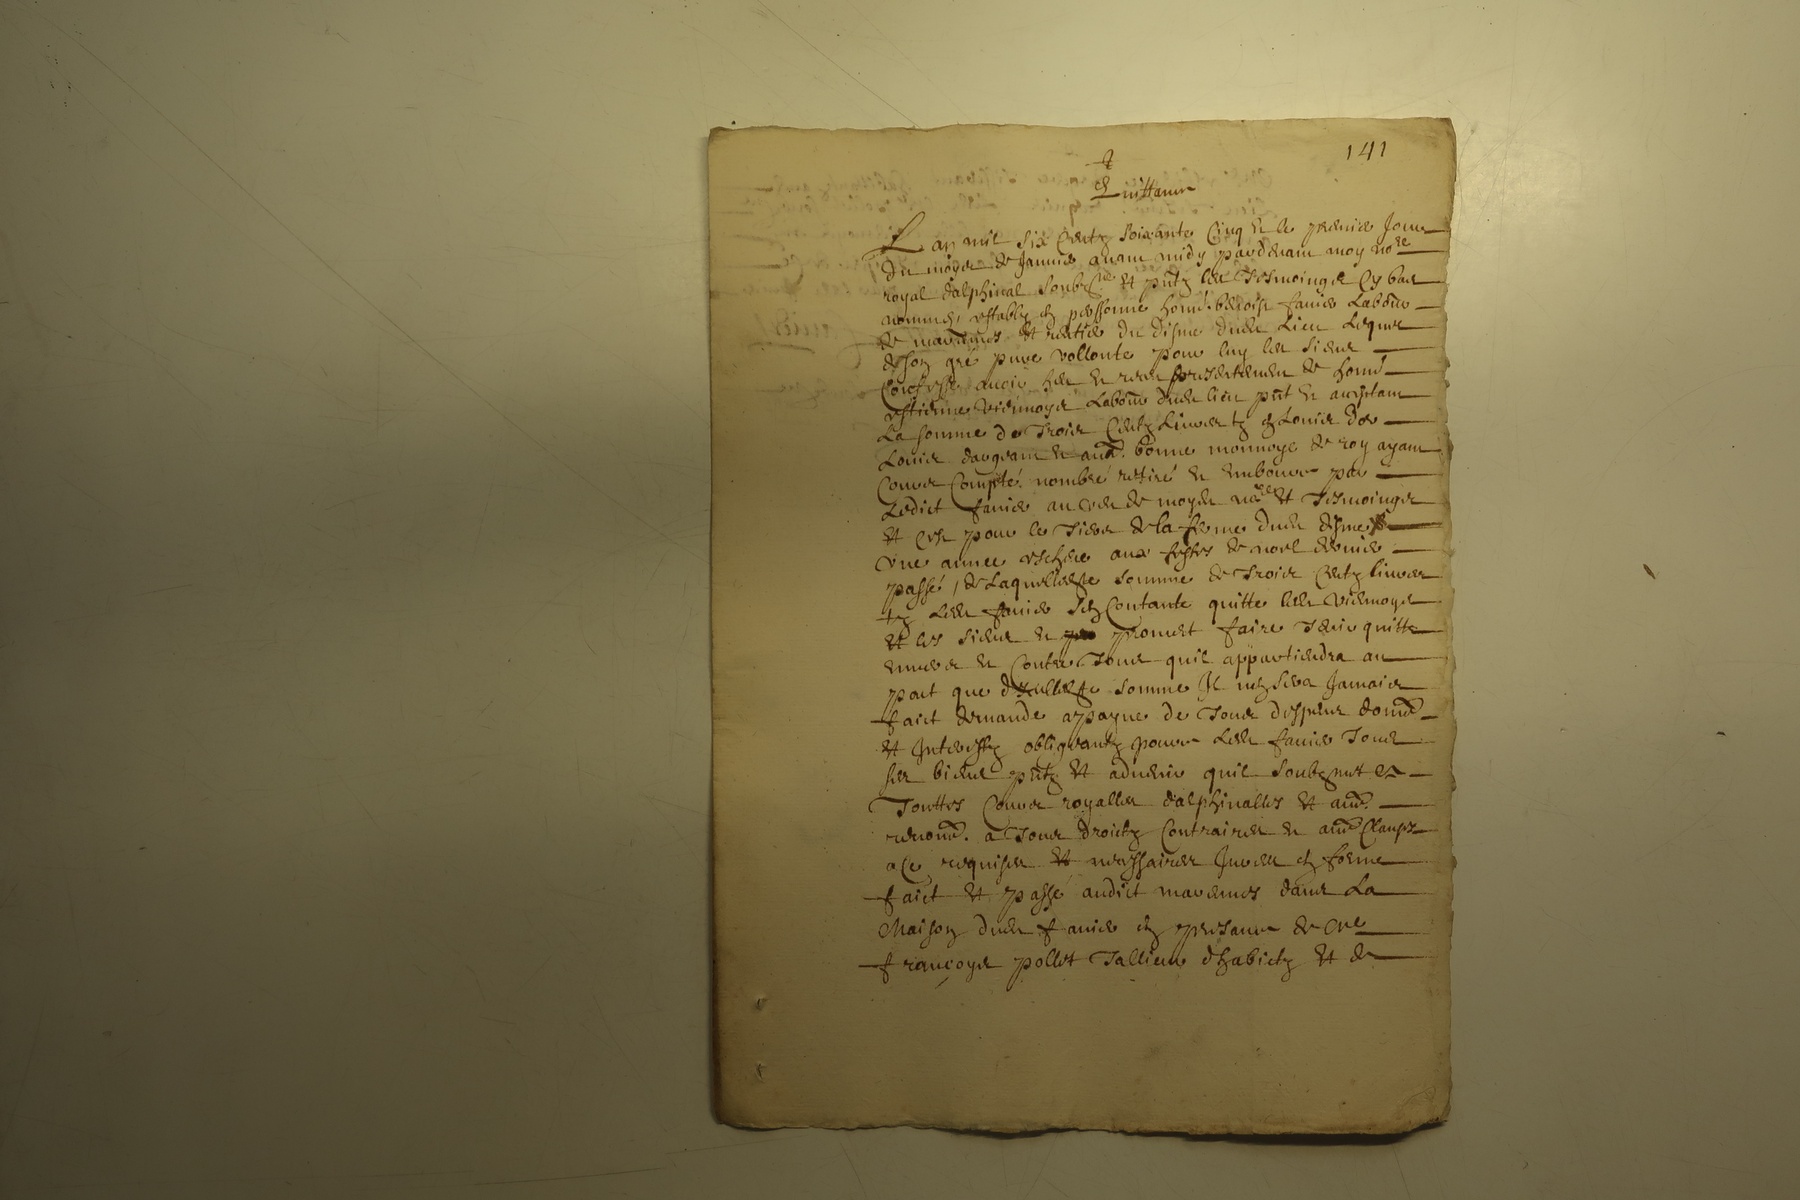 141
Quittance
L an mil six centz soixante cinq et le premier jour
du moys de Janvier avant midy pardevant moy no.re
royal dalphinal soubz.né et pntz les tesmoingz cy bas
nommés, establi en personne hon.e benoist favier labour
de marennes et rentier du disme dud. lieu lequel
de son gré pure vollonte pour luy les siens
confesse avoir heu et receu presentement de hon.e
estienne viermoyes labour dud. lieu pnt et acceptant
La somme de Trois centz livres tz en Louis d'or
Louis dargent et au.e bonne monnoye de roy ayant
cours compté nombré retiré et emboursé par
Ledict favier au veu de moyd. no.re et Tesmoingz
et c'est pour le Tiers de la ferme dud. disme
une année escheue aux festes de noel dernier
passé, de Laquelle somme de Trois centz livres
tz Led. favier sen contante quitte led. viermoyes
et les siens et promet faire tenir quitte
envers et contre Tous quil appartiendra au
pact que de ladte somme Il nen sera Jamais
faict demande a payne de Tous despens dom.e
et Interestz obligeantz pource led. favier Tous
ses biens pntz et advenir quil soubzmet a
Touttes cours royalles dalphinalles et au.e
renon.e a Tous droictz contraires et au.e clauses
a ce requises et necessaires Jurées en forme
faict et passé audict marennes dans La
Maison dud. favier en presance de me
françoys pollet Tallieur dhabictz et de